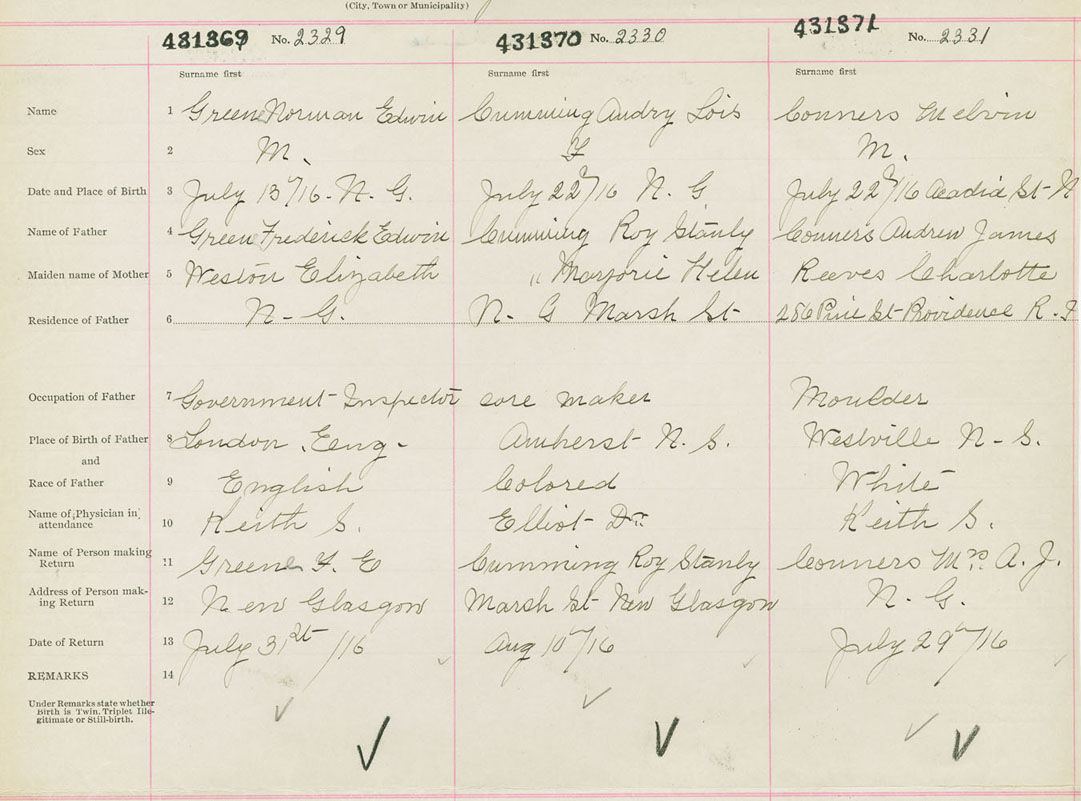 (City, Town or Municipality)
431369 No. 2329 431370 No. 2330 431371 No. 2331
Surname first Surname first Surname first
Name 1 Greene Norman Edwin Cumming Audry Lois Conners Melvin
Sex 2 M. F M.
Date and Place of Birth 3 July 13th/16 - N. G. July 22nd/16 N. G. July 22nd/16 Acadia St - N
Name of Father 4 Greene Frederick Edwin Cumming Roy Stanly Conners Andrew James
Maiden name of Mother 5 Weston Elizabeth " Marjorie Helen Reeves Charlotte
Residence of Father 6 N - G. N - G Marsh St 286 Pine St - Providence R. I
Occupation of Father 7 Government Inspector core maker Moulder
Place of Birth of Father 8 London, Eeng - Amherst N. S. Westville N - S.
and
Race of Father 9 English Colored White
Name of Physician in
attendance 10 Keith S. Elliot Dr. Keith S.
Name of Person making
Return 11 Greene F. E Cumming Roy Stanly Conners Mrs A. J.
Address of Person mak-
ing Return 12 New Glasgow Marsh St - New Glasgow N. G.
Date of Return 13 July 31st/16 Aug 10th/16 July 29th/16
REMARKS 14
Under Remarks state whether
Birth is Twin, Triplet Ille-
gitimate or Still-birth.